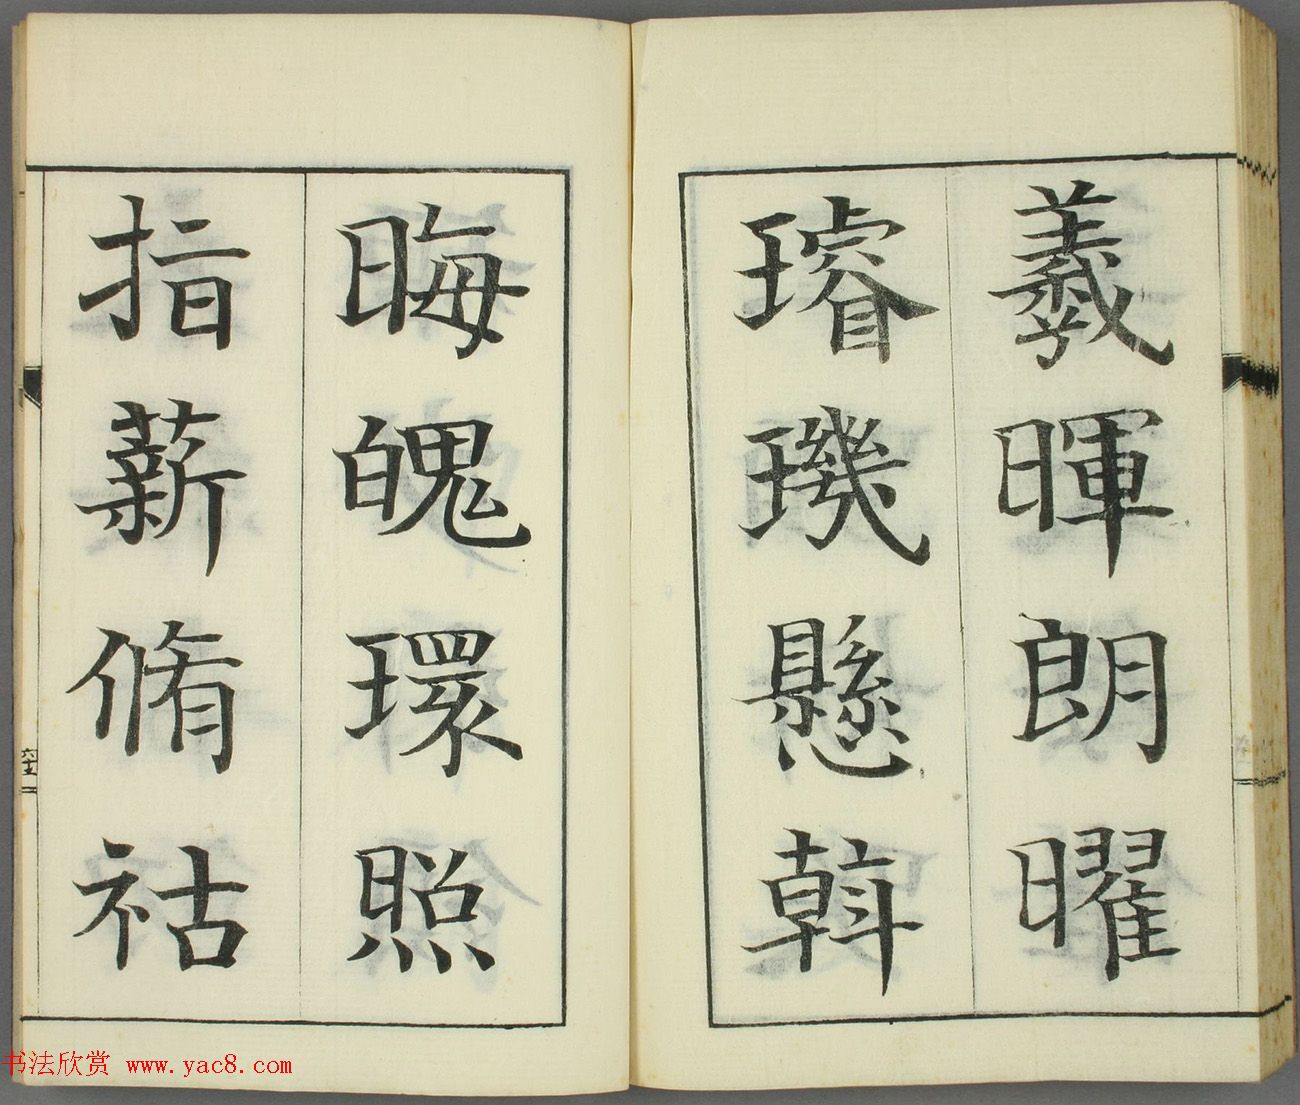 羲暉朗曜
璿璣懸斡
晦魄環照
指薪脩祜
六十五
书法欣赏 www.yac8.com